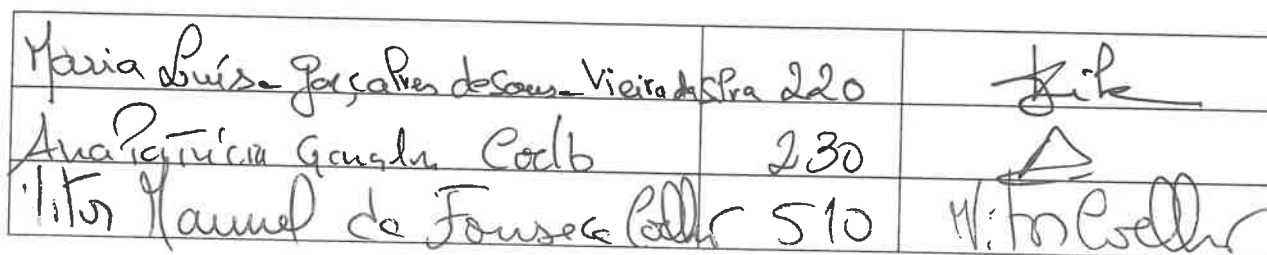 Maria Luísa Gonçalves de Sousa Vieira da Silva 220
Ana Patrícia Gonçalves Coelho 230
Vitor Manuel da Fonseca Coelho 510 Vitor Coelho